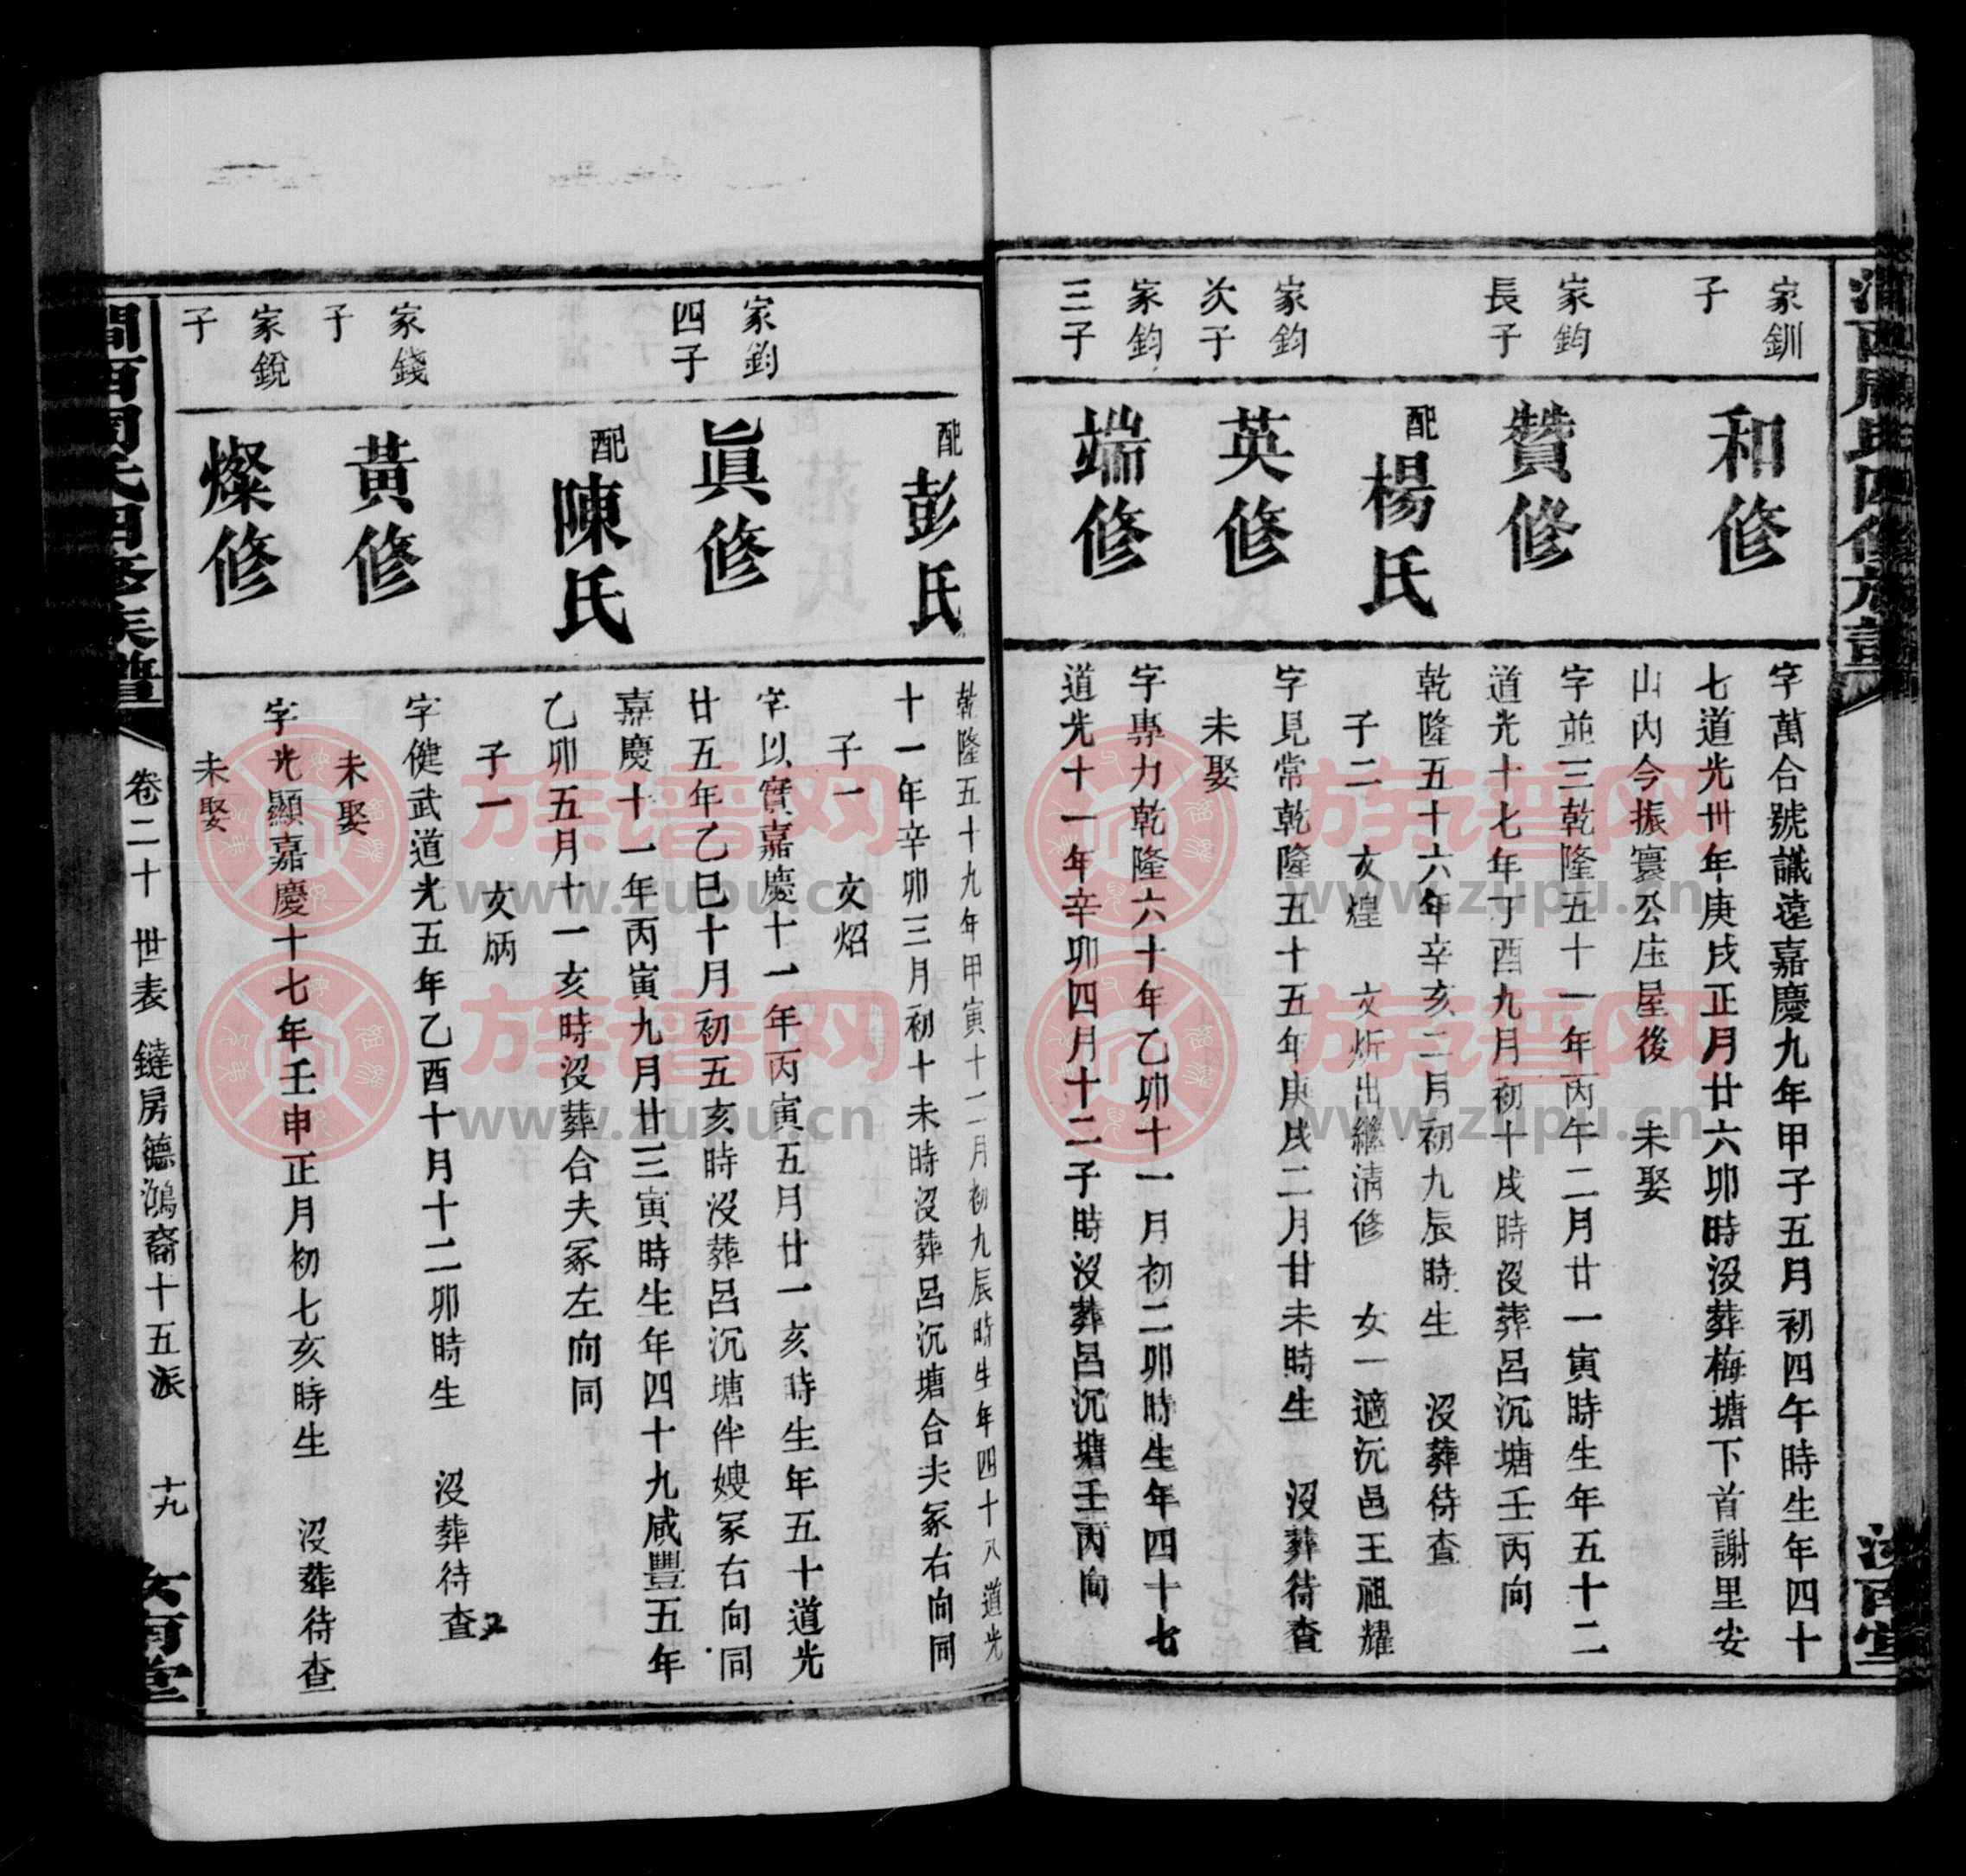 家釧
子
和修
字萬合號讖遠嘉慶九年甲子五月初四午時生年四十
七道光卅年庚戌正月廿六卯時沒葬梅塘下首謝里安
山內今振寰公庄屋後　未娶
家鈞
長子
贊修
字並三乾隆五十一年丙午二月廿一寅時生年五十二
道光十七年丁酉九月初十戌時沒葬呂沉塘壬丙向
配楊氏
乾隆五十六年辛亥二月初九辰時生　沒葬待查
子二　文煌　文炘出繼清修　女一適沅邑王祖耀
家鈞
次子
英修
字見常乾隆五十五年庚戌二月廿未時生　沒葬待查
未娶
家鈞
三子
端修
字專力乾隆六十年乙卯十一月初二卯時生年四十七
道光十一年辛卯四月十二子時沒葬呂沉塘壬丙向
配彭氏
乾隆五十九年甲寅十二月初九辰時生年四十八道光
十一年辛卯三月初十未時沒葬呂沉塘合夫冢右向同
子一　文炤
家鈞
四子
眞修
字以實嘉慶十一年丙寅五月廿一亥時生年五十道光
廿五年乙巳十月初五亥時沒葬呂沉塘伴嫂冢右向同
配陳氏
嘉慶十一年丙寅九月廿三寅時生年四十九咸豐五年
乙卯五月十一亥時沒葬合夫冢左向同
子一　文炳
家錢
子
黃修
字健武道光五年乙酉十月十二卯時生　沒葬待查
未娶
家銳
子
燦修
字光顯嘉慶十七年壬申正月初七亥時生　沒葬待查
未娶
卷二十　世表　鐽房德鴻裔十五派　十九
族谱网
www.zupu.cn
族谱网
www.zupu.cn
族谱网
www.zupu.cn
族谱网
www.zupu.cn